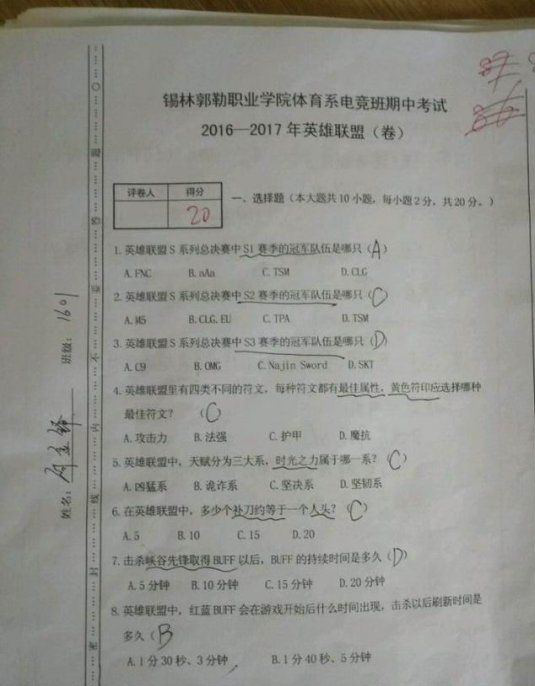 锡林郭勒职业学院体育系电竞班期中考试
2016—2017 年英雄联盟（卷）
评卷人 得分
20
一、选择题（本大题共 10 小题，每小题 2 分，共 20 分。）
1. 英雄联盟 S 系列总决赛中 S1 赛季的冠军队伍是哪只（A）
A. FNC B. aAa C. TSM D. CLG
2. 英雄联盟 S 系列总决赛中 S2 赛季的冠军队伍是哪只（C）
A. M5 B. CLG. EU C. TPA D. TSM
3. 英雄联盟 S 系列总决赛中 S3 赛季的冠军队伍是哪只（D）
A. C9 B. OMG C. Najin Sword D. SKT
4. 英雄联盟里有四类不同的符文，每种符文都有最佳属性，黄色符印应选择哪种
最佳符文？ （C）
A. 攻击力 B. 法强 C. 护甲 D. 魔抗
5. 英雄联盟中，天赋分为三大系，时光之力属于哪一系？（C）
A. 凶猛系 B. 诡诈系 C. 坚决系 D. 坚韧系
6. 在英雄联盟中，多少个补刀约等于一个人头？（C）
A. 5 B. 10 C. 15 D. 20
7. 击杀峡谷先锋取得 BUFF 以后，BUFF 的持续时间是多久（D）
A. 5 分钟 B. 10 分钟 C. 15 分钟 D. 20 分钟
8. 英雄联盟中，红蓝 BUFF 会在游戏开始后什么时间出现，击杀以后刷新时间是
多久（B）
A. 1 分 30 秒、3 分钟 B. 1 分 40 秒、5 分钟
班级：1601
姓名：
密 封 线 内 不 要 答 题